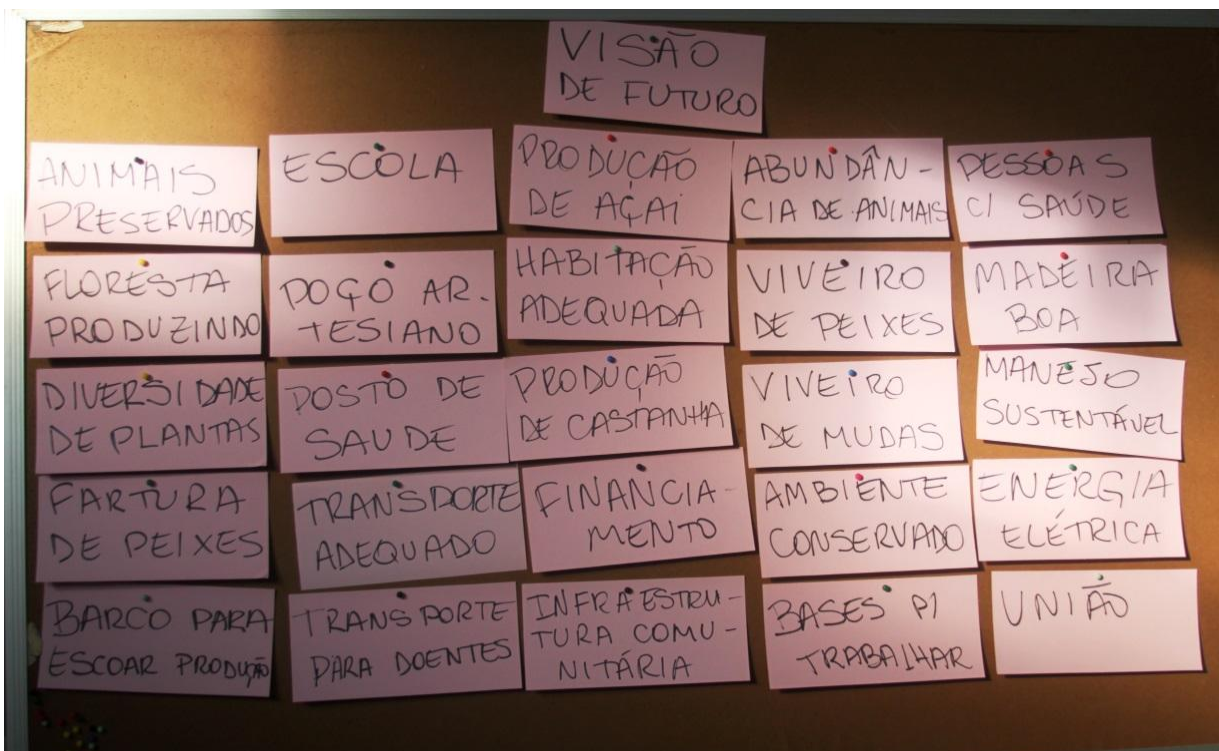 VISÃO
DE FUTURO
ANIMAIS
PRESERVADOS
ESCOLA
PRODUÇÃO
DE AÇAI
ABUNDÂN -
CIA DE ANIMAIS
PESSOAS
C/ SAÚDE
FLORESTA
PRODUZINDO
POÇO AR-
TESIANO
HABITAÇÃO
ADEQUADA
VIVEIRO
DE PEIXES
MADEIRA
BOA
DIVERSIDADE
DE PLANTAS
POSTO DE
SAUDE
PRODUÇÃO
DE CASTANHA
VIVEIRO
DE MUDAS
MANEJO
SUSTENTÁVEL
FARTURA
DE PEIXES
TRANSPORTE
ADEQUADO
FINANCIA -
MENTO
AMBIENTE
CONSERVADO
ENERGIA
ELÉTRICA
BARCO PARA
ESCOAR PRODUÇÃO
TRANSPORTE
PARA DOENTES
INFRAESTRU -
TURA COMU -
NITÁRIA
BASES P/
TRABALHAR
UNIÃO